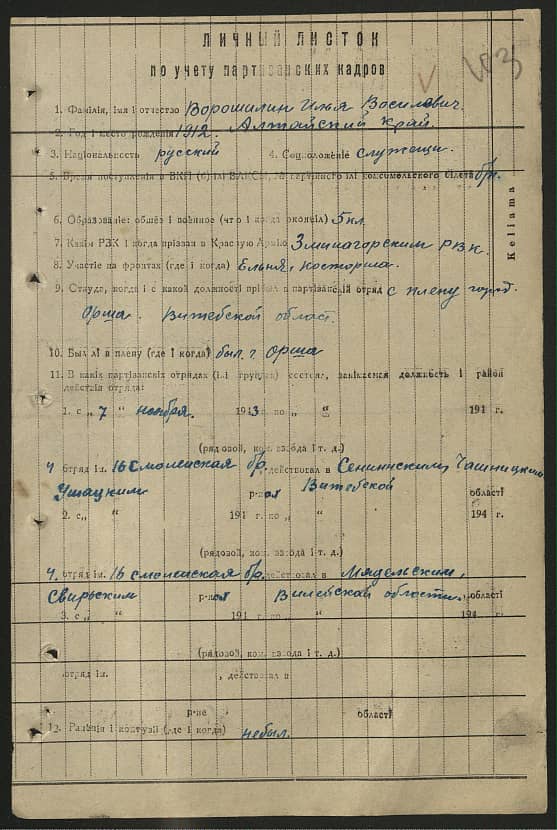 ЛИЧНЫЙ ЛИСТОК
по учету партизанских кадров
1. Фамілія, імя і отчество Ворошилин Илья Василевич.
2. Год і место рождения 1912. Алтайский край.
3. Національность русский 4. Соцположеніе служещи.
5. Время поступления в ВКП (б) ілі ВЛКСМ, № партійного ілі комсомольского білета б/п.
6. Образованіе: общее і военное (что і когда окончіл) 5 кл
7. Какім РВК і когда прізван в Красную Армію Змииагорским РВК.
8. Участіе на фронтах (где і когда) Ельня, Косторма.
9. Откуда, когда і с какой должності прібыл в партізанскій отряд с плену город.
Орша. Витебской област.
10. Был лі в плену (где і когда) был г. Орша
11. В какіх партізанскіх отрядах (ілі группах) состоял, занімаемая должность і район
действія отряда:
1. с „ 7 “ ноября. 1943 г. по „ “ 191 г.
(рядовой, ком. взвода і т. д.)
4 отряд ім. 16 Смоленская бр. действовал в Сеннинским, Чашницким
Ушацким р-нах Витебской області
2. с „ “ 191 г. по „ “ 194 г.
(рядовой, ком. взвода і т. д.)
4. отряд ім. 16 смоленская бр. действовал в Мядельским,
Свирьским р-нах Вилейской области. області
3. с „ “ 191 г. по „ “ 194 г.
(рядовой, ком. взвода і т. д.)
отряд ім. , действовал в
р-не області
12. Раненія і контузіі (где і когда) небыл.
Keliama